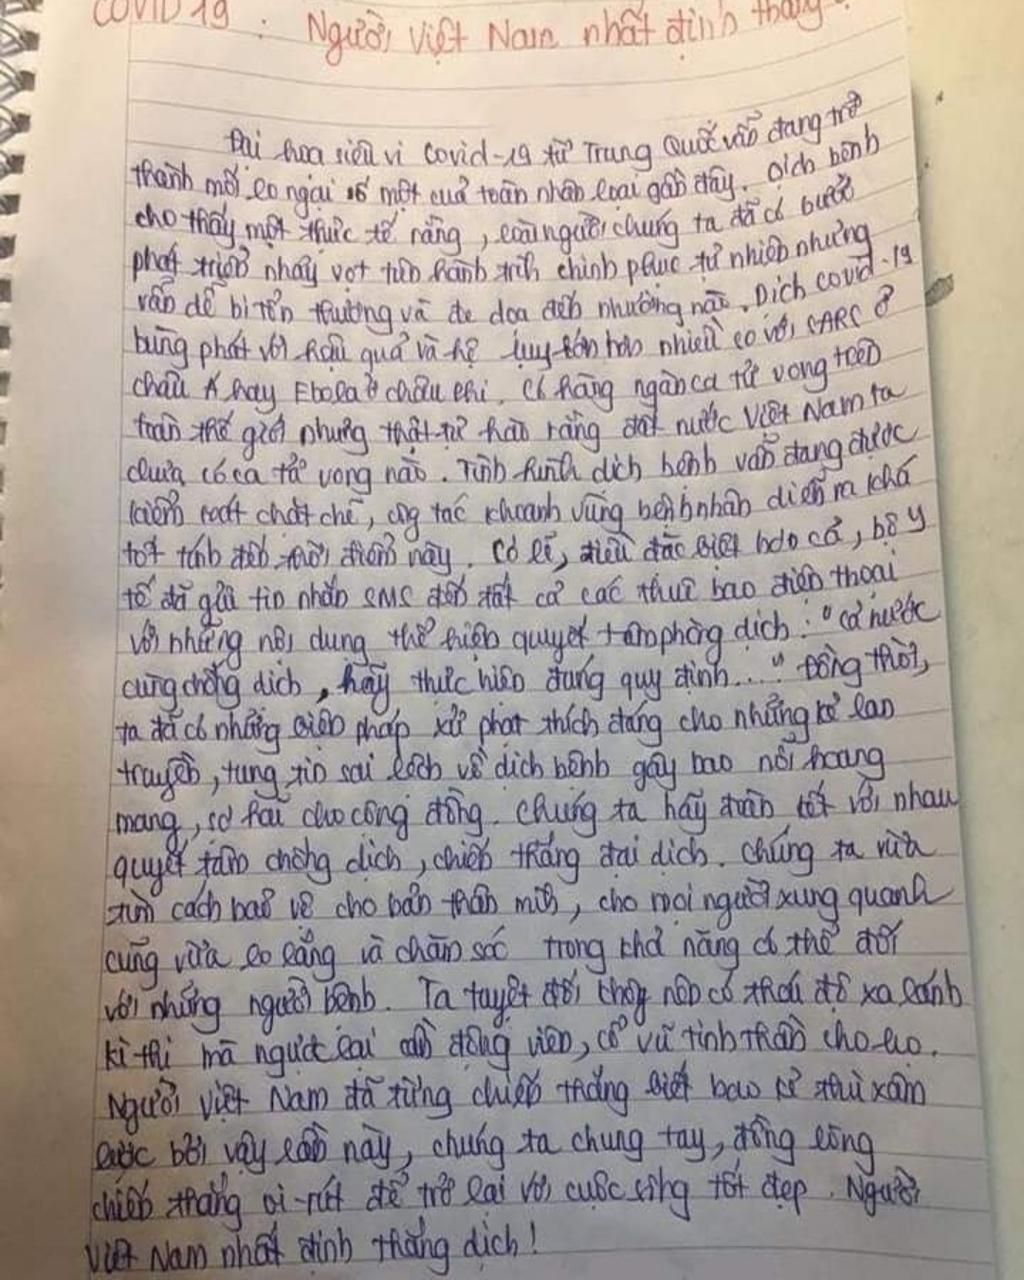 COVID 19 : Người Việt Nam nhất định thắng !
Đại họa siêu vi Covid-19 từ Trung Quốc vẫn đang trở
thành mối lo ngại số một của toàn nhân loại gần đây. Dịch bệnh
cho thấy một thực tế rằng, loài người chúng ta đã có bước
phát triển nhảy vọt trên hành trình chinh phục tự nhiên nhưng
vẫn dễ bị tổn thương và đe dọa đến nhường nào. Dịch covid-19
bùng phát với hậu quả và hệ lụy lớn hơn nhiều so với SARS ở
châu Á hay Ebola ở châu Phi. Có hàng ngàn ca tử vong trên
toàn thế giới nhưng thật tự hào rằng đất nước Việt Nam ta
chưa có ca tử vong nào. Tình hình dịch bệnh vẫn đang được
kiểm soát chặt chẽ, công tác khoanh vùng bệnh nhân diễn ra khá
tốt tính đến thời điểm này. Có lẽ, điều đặc biệt hơn cả, bộ y
tế đã gửi tin nhắn SMS đến tất cả các thuê bao điện thoại
với những nội dung thể hiện quyết tâm phòng dịch : "cả nước
cùng chống dịch, hãy thực hiện đúng quy định..." Đồng thời,
ta đã có những biện pháp xử phạt thích đáng cho những kẻ lan
truyền, tung tin sai lệch về dịch bệnh gây bao nỗi hoang
mang, sợ hãi cho cộng đồng. Chúng ta hãy đoàn kết với nhau
quyết tâm chống dịch, chiến thắng đại dịch. Chúng ta vừa
tìm cách bảo vệ cho bản thân mình, cho mọi người xung quanh
cũng vừa lo lắng và chăm sóc trong khả năng có thể đối
với những người bệnh. Ta tuyệt đối không nên có thái độ xa lánh
kì thị mà ngược lại cần động viên, cổ vũ tinh thần cho họ.
Người Việt Nam đã từng chiến thắng biết bao kẻ thù xâm
lược bởi vậy lần này, chúng ta chung tay, đồng lòng
chiến thắng vi-rút để trở lại với cuộc sống tốt đẹp. Người
Việt Nam nhất định thắng dịch!